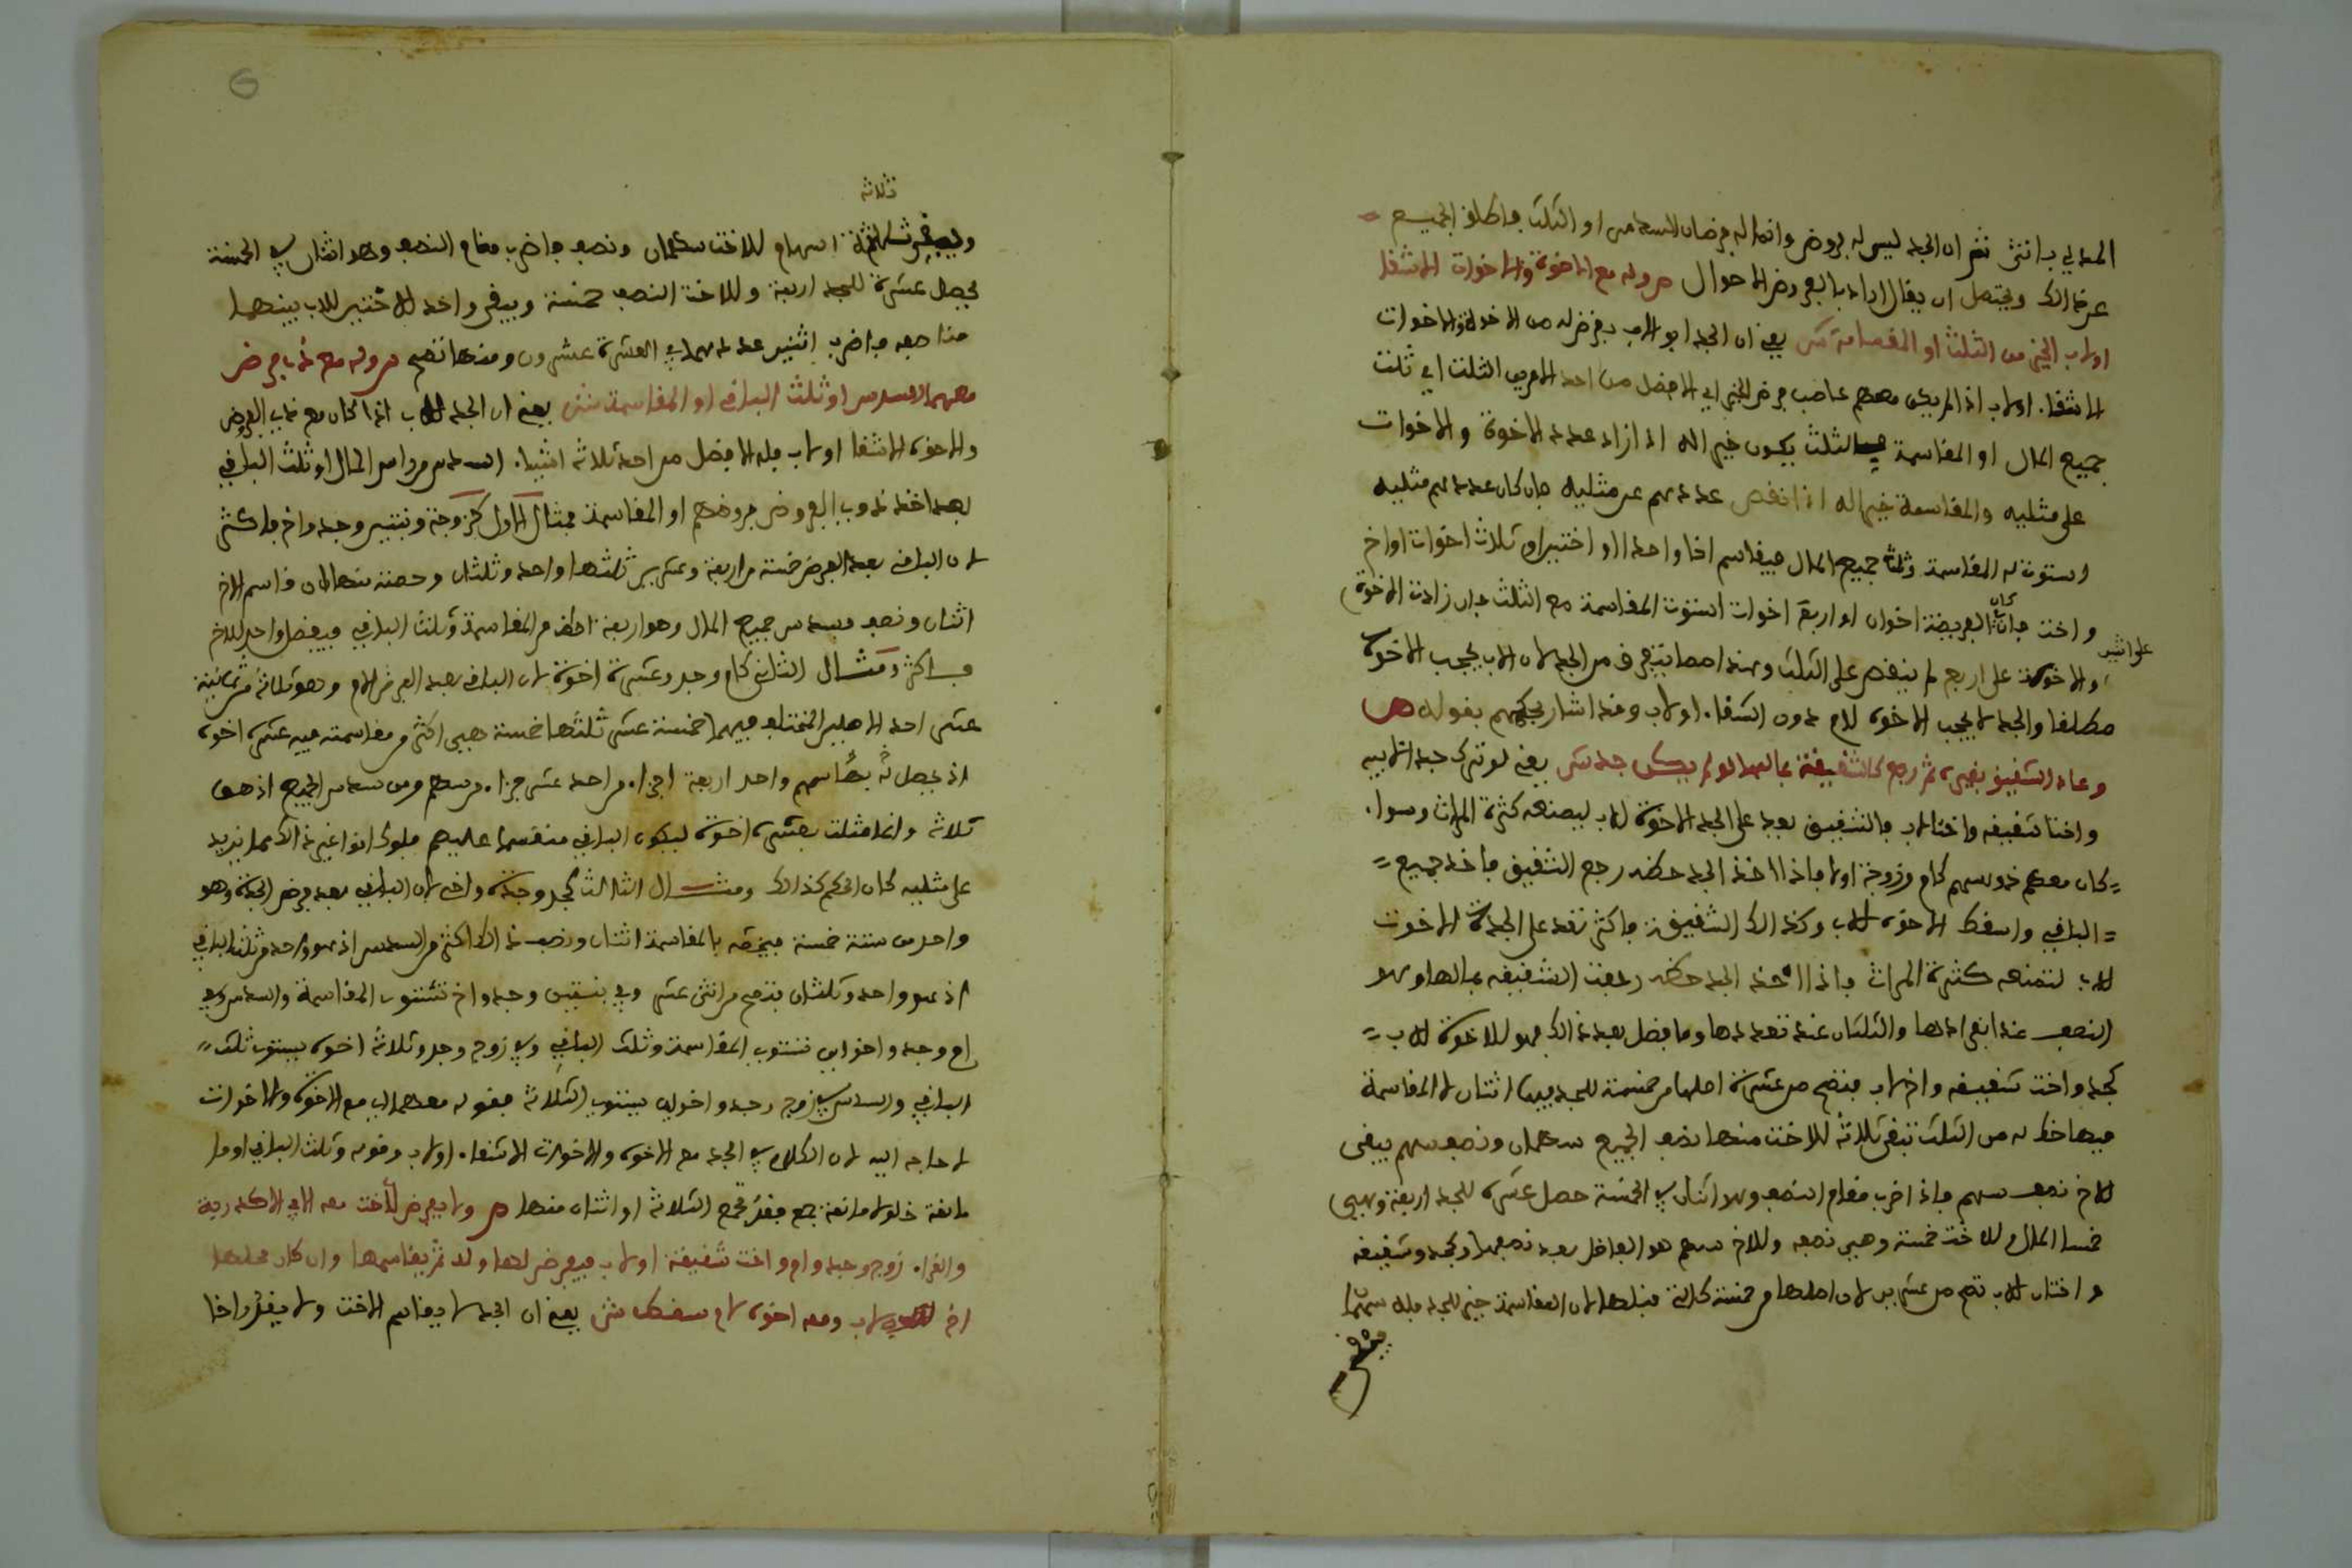 المعالي بانثى نعم ان الجد ليس له فروض وانما له فرضان السدس او الثلث فاطلق الجميع
على ذالك ويحتمل ان يقال اراد بالفروض الاحوال ص وله مع الاخوة والاخوات الاشقا
اولاب الخير من الثلث او المقاسمة ش يعني ان الجد ابو الاب يفرض له من الاخوة والاخوات
الاشقا. اولاب اذا لم يكن معهم صاحب فرض الخير اي الافضل من احد الامرين الثلث اي ثلث
جميع المال او المقاسمة فالثلث يكون خير اله اذا زاد عدد الاخوة والاخوات
على مثليه والمقاسمة خير اله اذا نقص عددهم عن مثليه فان كان عددهم مثليه
استوت له المقاسمة وثلث جميع المال فيقاسم اخا واحدا او اختين او ثلاث اخوات او اخ
واخت فان كان الفريضة اخوان او اربع اخوات استوت المقاسمة مع الثلث فان زادت الاخوة
على اثنين
والاخوة على اربع لم ينقص على الثلث وبهذا يفترق من الجد لان الاب يحجب الاخوة
مطلقا والجد لا يحجب الاخوة لام دون الشقا. اولاب وقد اشار بقوله ص
وعاد الشقيق بغيره ثم رجع كالشقيقة بمالها لو لم يكن جد ش يعني لو ترك جدا لابيه
واختا شقيقه واختا لاب فالشقيق يعد على الجد الاخوة للاب ليمنعه كثرة الميراث وسوا.
= كان معهم ذو سهم كام وزوجة اولا فاذا اخذ الجد حظه رجع الشقيق فاخذ جميع =
= الباقي واسقط الاخوة للاب وكذالك الشقيقة فاكثر تعد على الجد الاخوت
للاب لتمنعه كثرة الميراث فاذا اخذ الجد حظه رجعت الشقيقه بمالها وهو
النصف عند انفرادها والثلثان عند تعددها وما فضل بعد ذالك فهو للاخوة للاب =
كجد واخت شقيقه واخ لاب فتصح من عشرة اصلها من خمسة للجد فيها اثنان لان المقاسمة
فيها احظ له من الثلث تبقى ثلاثة للاخت منها نصف الجميع سهمان ونصف سهم يبقى
للاخ نصف سهم فاذا ضرب مقام النصف وهو اثنان في الخمسة حصل عشرة للجد اربعة وهي
خمسا المال وللاخت خمسة وهي نصفه وللاخ سهم هو الفاضل بعد نصفها وكجد وشقيقه
واختان للاب تصح من عشرين لان اصلها من خمسة كالتي قبلها لان المقاسمة خير للجد فله سهمان
ويبقى
ثلاثة
ويبقى ثلاثة اسهام للاخت سهمان ونصف فاضرب مقام النصف وهو اثنان في الخمسة
يحصل عشرة للجد اربعة وللاخت النصف خمسة ويبقى واحد للاختين للاب بينهما
مناصفه فاضرب اثنين عددهما في العشرة عشرون ومنها تصح ص وله مع ذي فرض
معهما السدس او ثلث الباقي او المقاسمة ش يعني ان الجد للاب اذا كان مع ذاب الفرض
والاخوة الاشقا اولاب فله الافضل من احد ثلاثة اشيا. السدس من راس المال او ثلث الباقي
بعد اخذ ذوي الفروض فروضهم او المقاسمة فمثال الاول كزوجة وبنتين وجد واخ فاكثر
لان الباقي بعد الفرض خمسة من اربعة وعشرين ثلثها واحد وثلثان وحصته منها ان قاسم الاخ
اثنان ونصف وسدس جميع المال وهو اربعة احظ من المقاسمة وثلث الباقي فيفضل واحد للاخ
فاكثر ومثال الثاني كام وجد وعشرة اخوة لان الباقي بعد الفرض للام وهو ثلاثة من ثمانية
عشر احد الاصلين المختلف فيهما خمسة عشر ثلثها خمسة فهي اكثر من مقاسمته فيه عشرة اخوة
اذ يحصل له بقاسمهم واحد اربعة اجزا. من احد عشر جزا. من سهم ومن سدس الجميع اذ هو
ثلاثة وانما مثلت بعشرة اخوة ليكون الباقي منقسما عليهم فلو كانوا غير ذالك مما يزيد
على مثليه كان الحكم كذالك ومثال الثالث كجد وجدة واخ لان الباقي بعد فرض الجدة وهو
واحد من ستة خمسة فيخصه بالمقاسمة اثنان ونصف ذالك اكثر من السدس اذ هو واحد ومن ثلث الباقي
اذ هو واحد وثلثان فتصح من اثنى عشر وفي بنتين وجد واخ تستوي المقاسمة والسدس وفي
ام وجد واخوين تستوي المقاسمة وثلث الباقي وفي زوج وجد وثلاثة اخوة يستوي ثلث =
الباقي والسدس وفي زوج وجد واخوين يستوي الثلاثة فقوله معهما اي مع الاخوة والاخوات
لا حاجة اليه لان الكلام في الجد مع الاخوة والاخوات الاشقا. اولاب وقوله وثلث الباقي او ما
مانعة خلو لا مانعة جمع فقد تجمع الثلاثة او اثنان منها ص ولا يفرض للاخت معه الا في الاكدرية
والغرا. زوج وجد وام واخت شقيقة اولاب فيفرض لها وله ثم يقاسمها وان كان محلها
اخ لاب ومعه اخوة لام سقط ش يعني ان الجد لا يقاسم الاخت ولا يقدر اخا